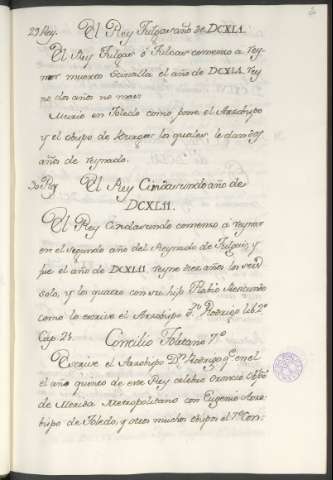 29 Rey. El Rey Fulgas año de DCXL1.
El Rey Fulgas ó Fulcas comenso a Rey-
nar muerto Scintilla el año de DCXL1. Rey
no dos años no mas.
Murio en Toledo como pone el Arzobispo
y el obispo de Burgos los quales le dan dos
años de reynado.
30 Rey. El Rey Cindasundo año de
DCXL11.
El Rey Cindasundo comenso a reynar
en el segundo año del Reynado de Fulgas, y
fue el año de DCXL11. reyno diez años los seis
solo, y los quatro con su hijo
como lo escrive el Arzobispo Dn. Rodrigo lib. 2º
Cap. 21.
Concilio Toletano 7º
Escrive el Arzobispo Dn. Rodrigo qe. en el
el año quinto de este Rey celebro Oroncio obpo.
de Merida Metropolitano con Eugenio Arzo-
bispo de Toledo, y otros muchos obispos el 7º Con-